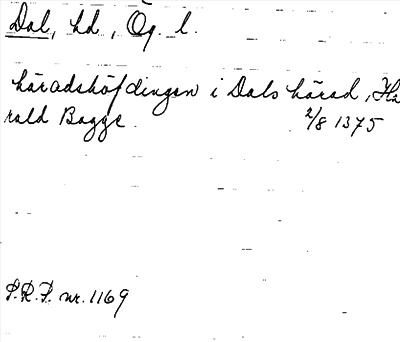 Dal, hd, Ög. l.
häradshöfdingen i Dals härad, Ha
rald Bagge. 2/8 1375
S.R.P. nr. 1169